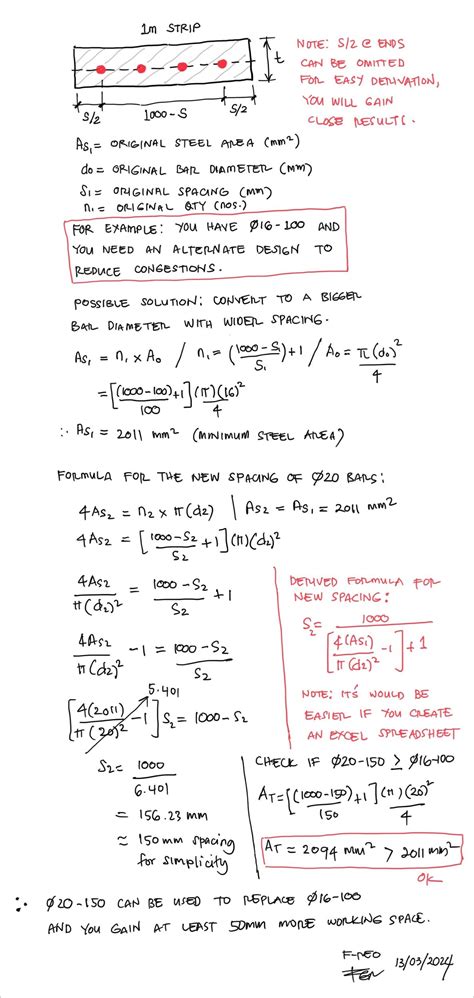 1m STRIP
t
S/2
1000-S
S/2
NOTE: S/2 @ ENDS
CAN BE OMITTED
FOR EASY DERIVATION,
YOU WILL GAIN
CLOSE RESULTS.
As₁ = ORIGINAL STEEL AREA (mm²)
do = ORIGINAL BAR DIAMETER (mm)
S₁ = ORIGINAL SPACING (mm)
n₁ = ORIGINAL QTY (nos.)
FOR EXAMPLE: YOU HAVE Ø16-100 AND
YOU NEED AN ALTERNATE DESIGN TO
REDUCE CONGESTIONS.
POSSIBLE SOLUTION: CONVERT TO A BIGGER
BAR DIAMETER WITH WIDER SPACING.
As₁ = n₁ x Ao / n₁ = (1000-S₁/S₁)+1 / Ao = π(do)²/4
= [(1000-100)/100+1](π)(16)²/4
∴ As₁ = 2011 mm² (MINIMUM STEEL AREA)
FORMULA FOR THE NEW SPACING OF Ø20 BARS:
4As₂ = n₂ x π(d₂) | As₂ = As₁ = 2011 mm²
4As₂ = [1000-S₂/S₂ +1](π)(d₂)²
4As₂/π(d₂)² = 1000-S₂/S₂ +1
4As₂/π(d₂)² -1 = 1000-S₂/S₂
5.401
[4(2011)/π(20)² -1] S₂ = 1000-S₂
S₂ = 1000/6.401
= 156.23 mm
≈ 150mm spacing
for simplicity
DERIVED FORMULA FOR
NEW SPACING:
S₂ = 1000/[4(As₁)/π(d₂)² -1]+1
NOTE: IT'S WOULD BE
EASIER IF YOU CREATE
AN EXCEL SPREADSHEET
CHECK IF Ø20-150 ≥ Ø16-100
AT = [(1000-150)/150+1](π)(20)²/4
AT = 2094 mm² > 2011 mm²
OK
∴ Ø20-150 CAN BE USED TO REPLACE Ø16-100
AND YOU GAIN AT LEAST 50MM MORE WORKING SPACE.
F-NEO
13/03/2024